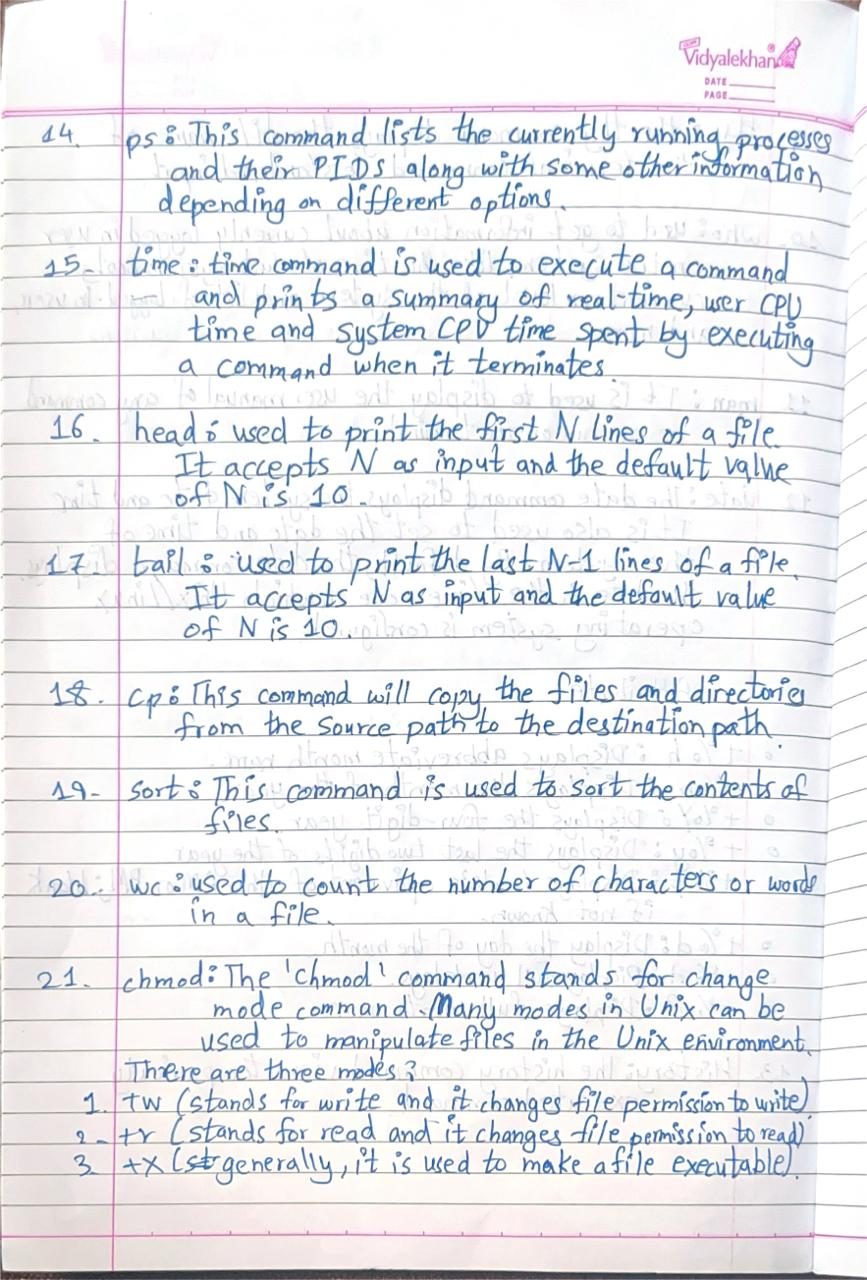 Vidyalekhan
DATE
PAGE
14. ps : This command lists the currently running processes
and their PIDs along with some other information
depending on different options.
15- time : time command is used to execute a command
and prints a summary of real-time, user CPU
time and system CPU time spent by executing
a command when it terminates.
16. head : used to print the first N lines of a file.
It accepts N as input and the default value
of N is 10.
17. tail : used to print the last N-1 lines of a file.
It accepts N as input and the default value
of N is 10.
18. cp : This command will copy the files and directories
from the source path to the destination path.
19- sort : This command is used to sort the contents of
files.
20- wc : used to count the number of characters or words
in a file.
21. chmod : The 'chmod' command stands for change
mode command. Many modes in Unix can be
used to manipulate files in the Unix environment.
There are three modes :
1. +w (stands for write and it changes file permission to write)
2- +r (stands for read and it changes file permission to read)
3. +x (generally, it is used to make a file executable).